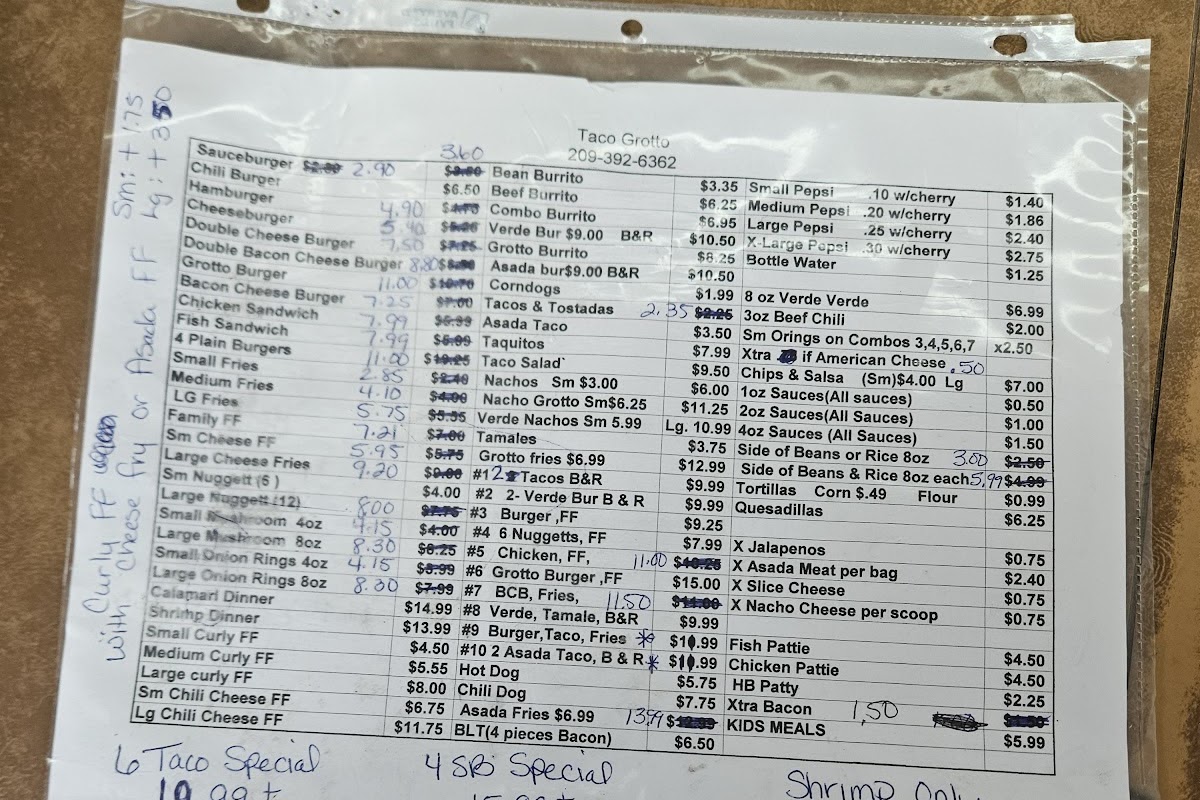 Taco Grotto
209-392-6362
Sm: + 1.75
Lg: + 3.50
Curly FF
with Cheese fry or Asada FF
3.60
Sauceburger $2.80 2.90
Chili Burger $6.50
Hamburger 4.90 $4.75
Cheeseburger 5.40 $5.25
Double Cheese Burger 7.50 $7.25
Double Bacon Cheese Burger 8.80 $8.50
Grotto Burger 11.00 $10.70
Bacon Cheese Burger 7.25 $7.00
Chicken Sandwich 7.99 $6.99
Fish Sandwich 7.99 $6.99
4 Plain Burgers 11.00 $10.25
Small Fries 2.85 $2.40
Medium Fries 4.10 $4.00
LG Fries 5.75 $5.55
Family FF 7.21 $7.00
Sm Cheese FF 5.95 $5.75
Large Cheese Fries 9.20 $9.00
Sm Nuggett (6 ) $4.00
Large Nuggett (12) 8.00 $7.75
Small Mushroom 4oz 4.15 $4.00
Large Mushroom 8oz 8.30 $8.25
Small Onion Rings 4oz 4.15 $3.99
Large Onion Rings 8oz 8.30 $7.99
Calamari Dinner $14.99
Shrimp Dinner $13.99
Small Curly FF $4.50
Medium Curly FF $5.55
Large curly FF $8.00
Sm Chili Cheese FF $6.75
Lg Chili Cheese FF $11.75
Bean Burrito $3.35
Beef Burrito $6.25
Combo Burrito $6.95
Verde Bur $9.00 B&R $10.50
Grotto Burrito $8.25
Asada bur$9.00 B&R $10.50
Corndogs $1.99
Tacos & Tostadas 2.35 $2.25
Asada Taco $3.50
Taquitos $7.99
Taco Salad $9.50
Nachos Sm $3.00 $6.00
Nacho Grotto Sm$6.25 $11.25
Verde Nachos Sm 5.99 Lg. 10.99
Tamales $3.75
Grotto fries $6.99 $12.99
#1 2 Tacos B&R $9.99
#2 2- Verde Bur B & R $9.99
#3 Burger ,FF $9.25
#4 6 Nuggetts, FF $7.99
#5 Chicken, FF, 11.00 $10.25
#6 Grotto Burger ,FF $15.00
#7 BCB, Fries, 11.50 $11.00
#8 Verde, Tamale, B&R $9.99
#9 Burger,Taco, Fries * $10.99
#10 2 Asada Taco, B & R * $10.99
Hot Dog $5.75
Chili Dog $7.75
Asada Fries $6.99 13.99 $12.99
BLT(4 pieces Bacon) $6.50
Small Pepsi .10 w/cherry $1.40
Medium Pepsi .20 w/cherry $1.86
Large Pepsi .25 w/cherry $2.40
X-Large Pepsi .30 w/cherry $2.75
Bottle Water $1.25
8 oz Verde Verde $6.99
3oz Beef Chili $2.00
Sm Orings on Combos 3,4,5,6,7 x2.50
Xtra if American Cheese .50
Chips & Salsa (Sm)$4.00 Lg $7.00
1oz Sauces(All sauces) $0.50
2oz Sauces(All Sauces) $1.00
4oz Sauces (All Sauces) $1.50
Side of Beans or Rice 8oz 3.00 $2.50
Side of Beans & Rice 8oz each 5.99 $4.99
Tortillas Corn $.49 Flour $0.99
Quesadillas $6.25
X Jalapenos $0.75
X Asada Meat per bag $2.40
X Slice Cheese $0.75
X Nacho Cheese per scoop $0.75
Fish Pattie $4.50
Chicken Pattie $4.50
HB Patty $2.25
Xtra Bacon 1,50 $1.50
KIDS MEALS $5.99
6 Taco Special
4 SB Special
Shrimp Only